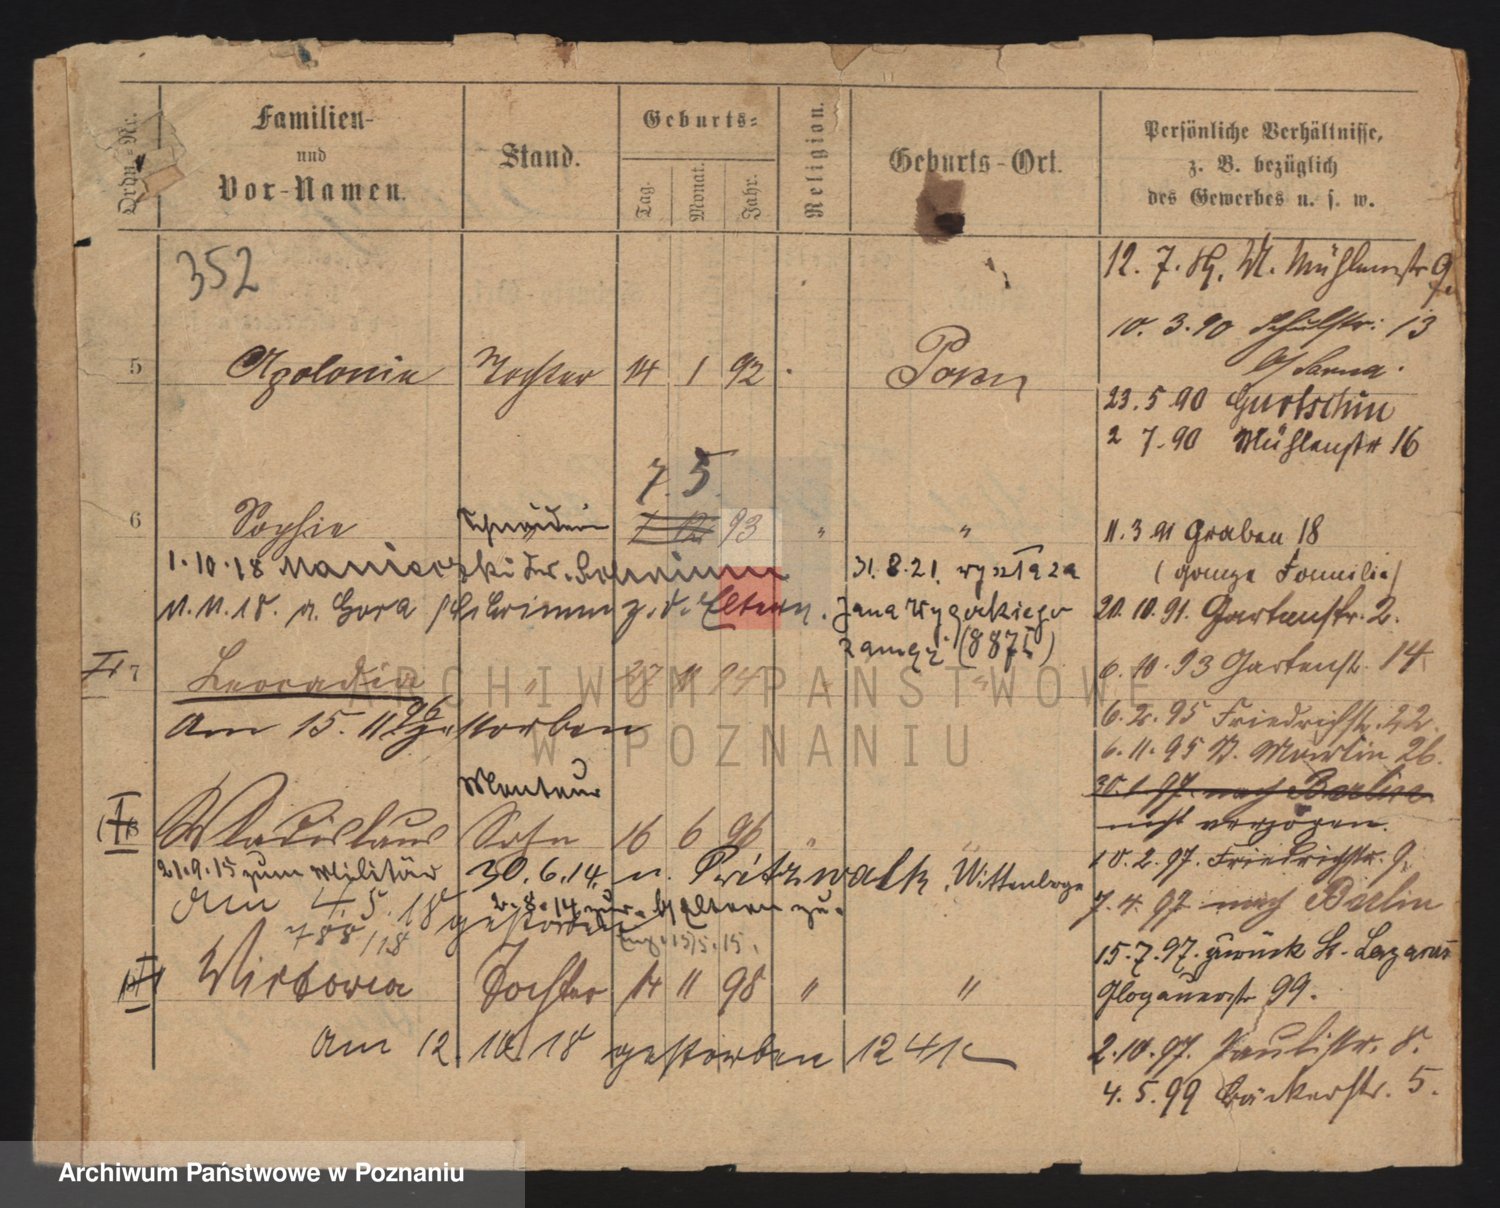 Ordn.-Nr.
Familien-
und
Vor-Namen.
Stand.
Geburts-
Tag.
Monat.
Jahr.
Religion.
Geburts-Ort.
Persönliche Verhältnisse,
z. B. bezüglich
des Gewerbes u. s. w.
352
12. 7. Mühlenstr 9
10. 3. 90 Schulstr: 13
5 Apolonia Tochter 14 1 92 Posen
23. 5. 90 Gurtschin
2 7. 90 Mühlenstr 16
7. 5.
6 Sophie Schneiderin 1 12 93 " "
11. 3 91 Graben 18
(ganze Familie)
1. 10. 18
31. 8. 21.
11. 11. 18. n. Gora z. d. Eltern.
20. 10. 91. Gartenstr. 2.
(8875)
6. 10. 93 Gartenstr. 14
7 Leocadia " 27 11 94 " "
am 15. 11 96 gestorben
6. 2. 95 Friedrichstr. 22.
6. 11. 95 St. Martin 26.
30. 1. 97. nach Berlin
nicht verzogen.
Monteur
8 Wladislaus Sohn 16 6 96 " "
10. 2. 97. Friedrichstr. 9.
21. 9. 15 zum Militär 30. 6. 14. n. Pritzwalk, Wittenberge
7. 4. 97 nach Berlin
2. 8. 14 zur. b/ Eltern zu.
am 4 5. 18 gestorben
788/18
15. 7. 97. zurück St. Lazarus
Glogauerstr 99.
Victoria Tochter 14 11 98 " "
am 12. 10. 18 gestorben 1241
2. 10. 97. Paulistr. 8.
4. 5. 99 Bäckerstr. 5.
ARCHIWUM PAŃSTWOWE
W POZNANIU
Archiwum Państwowe w Poznaniu